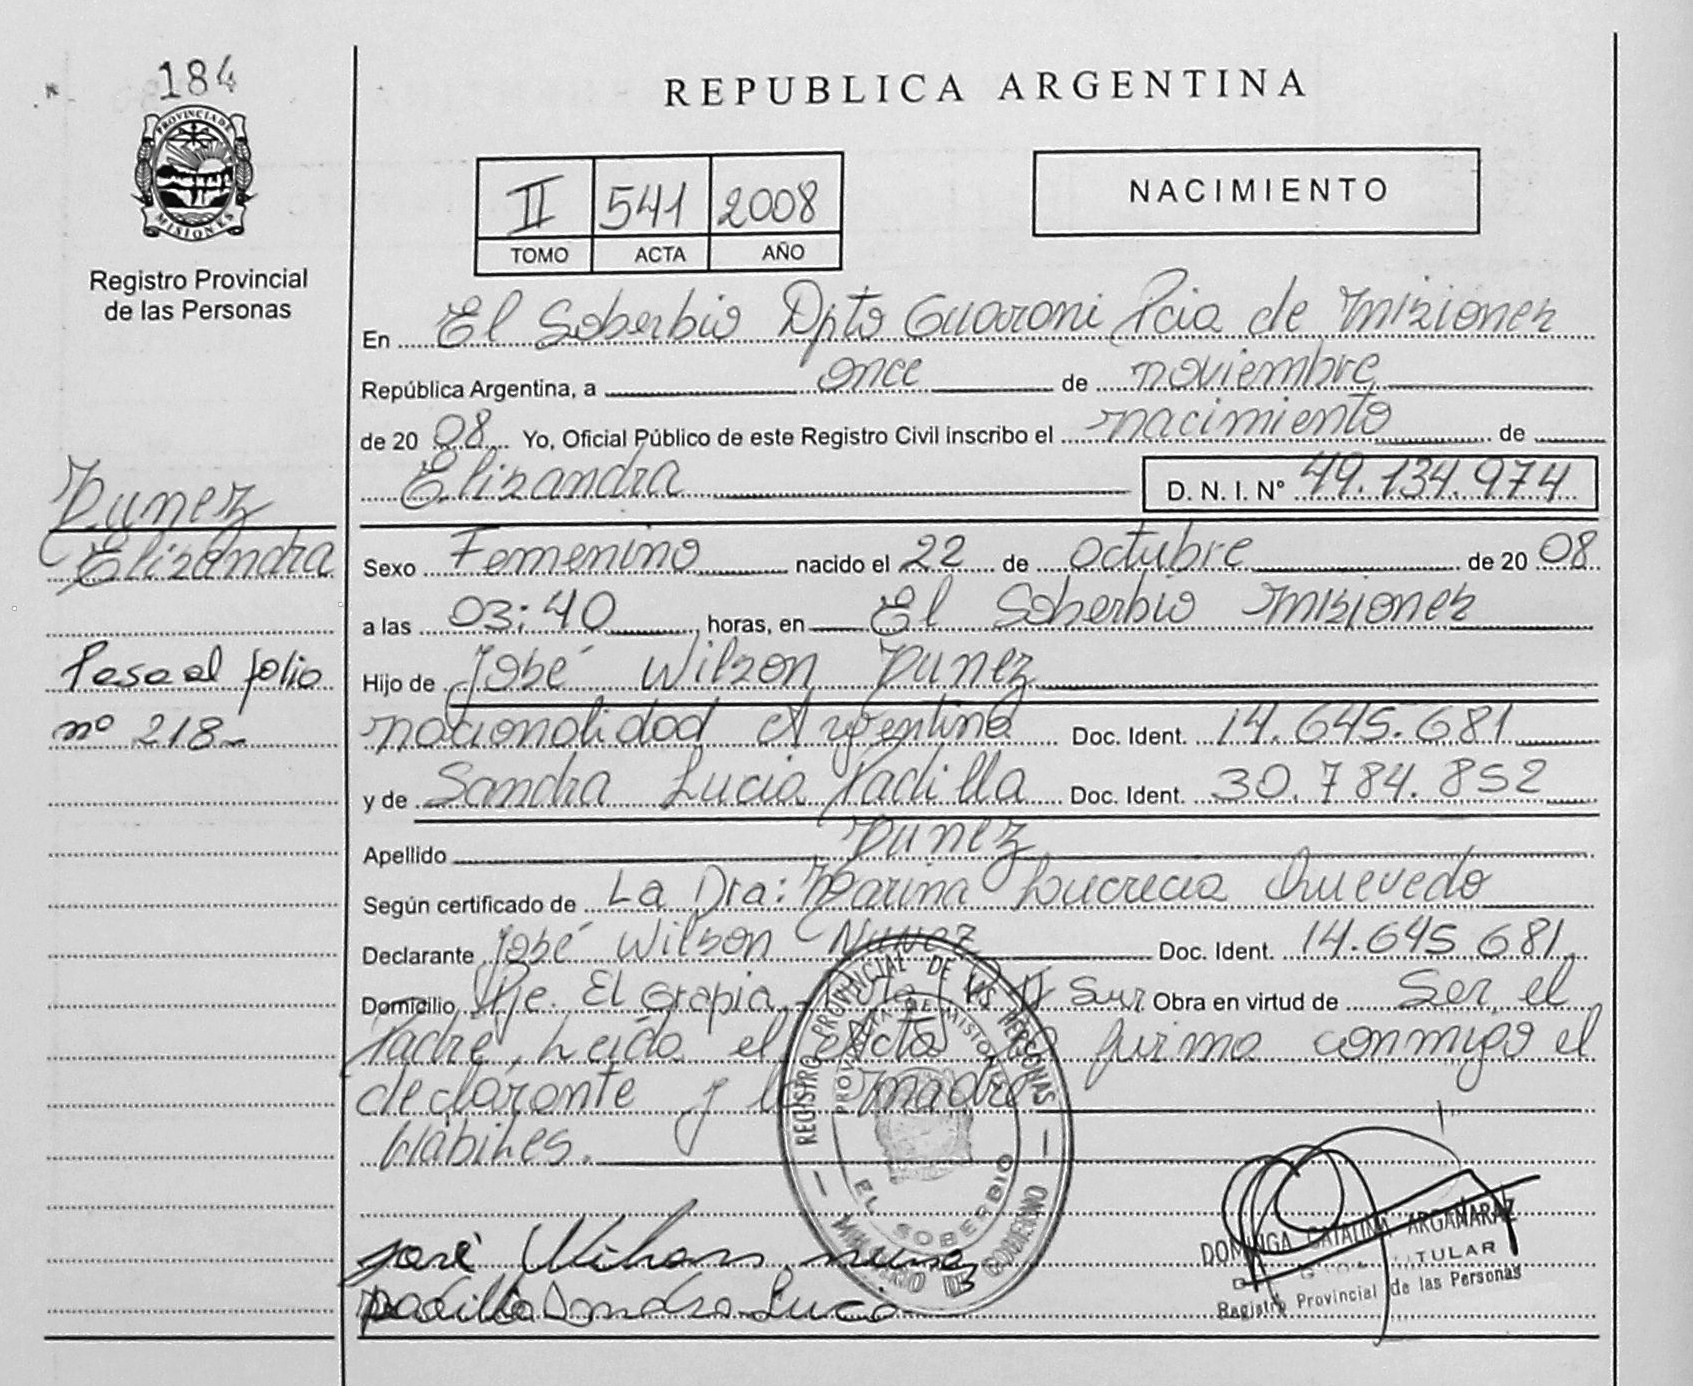 184
PROVINCIA DE
MISIONES
Registro Provincial
de las Personas
REPUBLICA ARGENTINA
II 541 2008
TOMO ACTA AÑO
NACIMIENTO
En El Soberbio Dpto Guarani Pcia de Misiones
República Argentina, a once de noviembre
de 2008 Yo, Oficial Público de este Registro Civil inscribo el nacimiento de
Elizandra D. N. I. Nº 49.134.974
Nunez
Elizandra
Pasa al folio
nº 218-
Sexo Femenino nacido el 22 de octubre de 2008
a las 03:40 horas, en El Soberbio Misiones
Hijo de José Wilson Nunez
nacionalidad Argentina Doc. Ident. 14.645.681
y de Sandra Lucia Padilla Doc. Ident. 30.784.852
Apellido Nunez
Según certificado de La Dra: Marina Lucrecia Quevedo
Declarante José Wilson Nunez Doc. Ident. 14.645 681
Domicilio Pje. El Grapia, II Sur Obra en virtud de Ser el
Padre, Leida el Acta la firma conmigo el
declarante y la madre
Habiles.
REGISTRO PROVINCIAL DE LAS PERSONAS
PROVINCIA DE MISIONES
EL SOBERBIO
MINISTERIO DE GOBIERNO
José Wilson nunez
padilla Sandra Lucia
DOMINGA CATALINA ARGAÑARAZ
TITULAR
Registro Provincial de las Personas